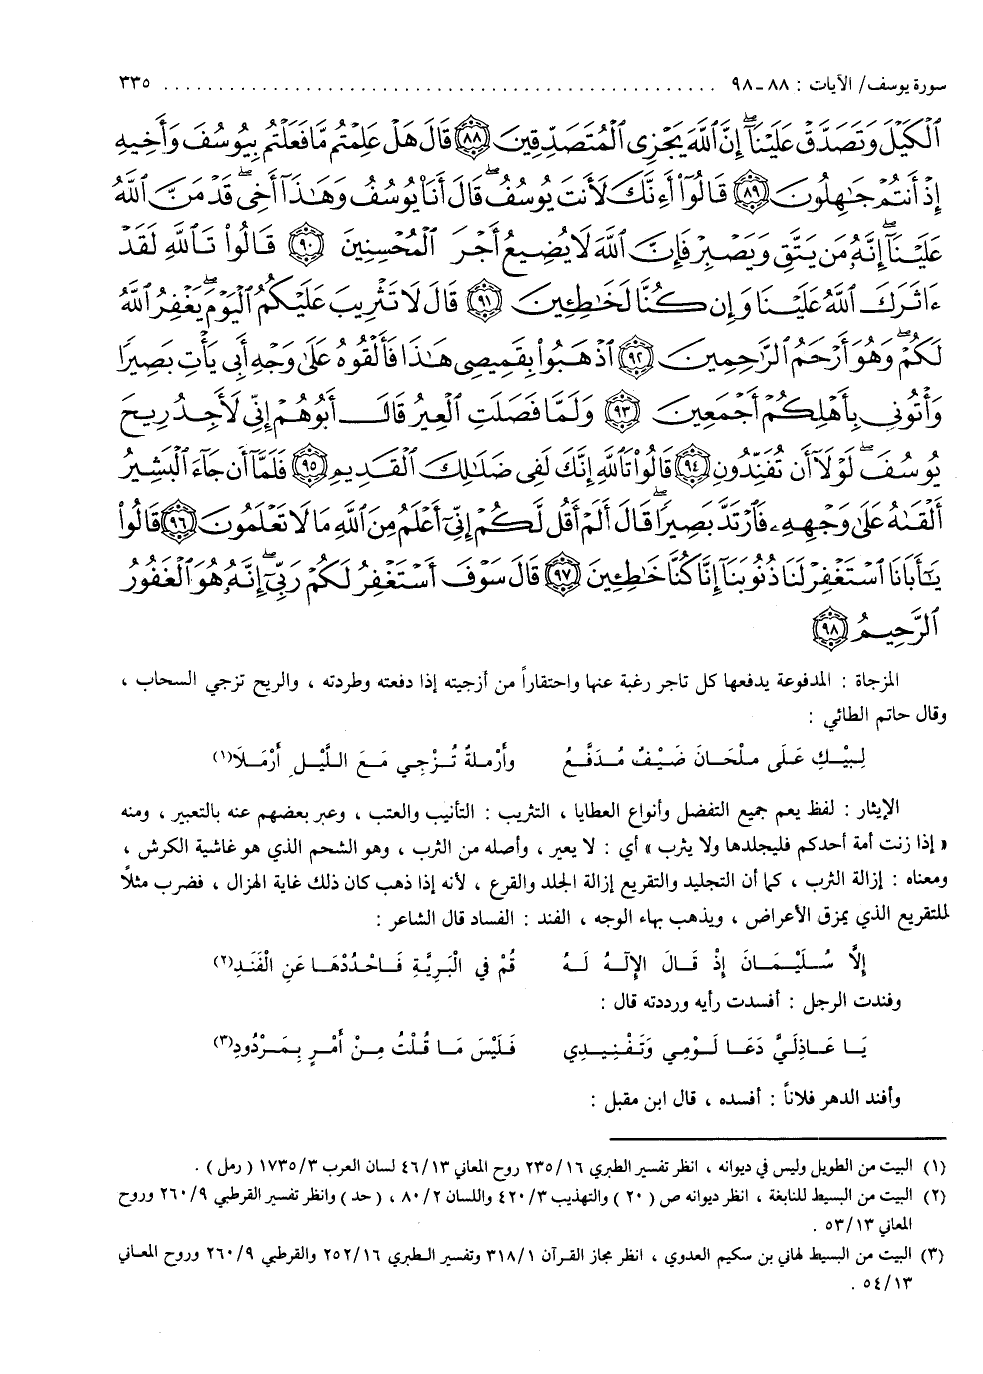 سورة يوسف/ الآيات : ٨٨ـ ٩٨ ........ ٣٣٥
ٱلْكَيْلَ وَتَصَدَّقْ عَلَيْنَآ ۖ إِنَّ ٱللَّهَ يَجْزِى ٱلْمُتَصَدِّقِينَ ﴿٨٨﴾ قَالَ هَلْ عَلِمْتُم مَّا فَعَلْتُم بِيُوسُفَ وَأَخِيهِ
إِذْ أَنتُمْ جَـٰهِلُونَ ﴿٨٩﴾ قَالُوٓا۟ أَءِنَّكَ لَأَنتَ يُوسُفُ ۖ قَالَ أَنَا۠ يُوسُفُ وَهَـٰذَآ أَخِى ۖ قَدْ مَنَّ ٱللَّهُ
عَلَيْنَآ ۖ إِنَّهُۥ مَن يَتَّقِ وَيَصْبِرْ فَإِنَّ ٱللَّهَ لَا يُضِيعُ أَجْرَ ٱلْمُحْسِنِينَ ﴿٩٠﴾ قَالُوا۟ تَٱللَّهِ لَقَدْ
ءَاثَرَكَ ٱللَّهُ عَلَيْنَا وَإِن كُنَّا لَخَـٰطِـِٔينَ ﴿٩١﴾ قَالَ لَا تَثْرِيبَ عَلَيْكُمُ ٱلْيَوْمَ ۖ يَغْفِرُ ٱللَّهُ
لَكُمْ ۖ وَهُوَ أَرْحَمُ ٱلرَّٰحِمِينَ ﴿٩٢﴾ ٱذْهَبُوا۟ بِقَمِيصِى هَـٰذَا فَأَلْقُوهُ عَلَىٰ وَجْهِ أَبِى يَأْتِ بَصِيرًا
وَأْتُونِى بِأَهْلِكُمْ أَجْمَعِينَ ﴿٩٣﴾ وَلَمَّا فَصَلَتِ ٱلْعِيرُ قَالَ أَبُوهُمْ إِنِّى لَأَجِدُ رِيحَ
يُوسُفَ ۖ لَوْلَآ أَن تُفَنِّدُونِ ﴿٩٤﴾ قَالُوا۟ تَٱللَّهِ إِنَّكَ لَفِى ضَلَـٰلِكَ ٱلْقَدِيمِ ﴿٩٥﴾ فَلَمَّآ أَن جَآءَ ٱلْبَشِيرُ
أَلْقَىٰهُ عَلَىٰ وَجْهِهِۦ فَٱرْتَدَّ بَصِيرًا ۖ قَالَ أَلَمْ أَقُل لَّكُمْ إِنِّىٓ أَعْلَمُ مِنَ ٱللَّهِ مَا لَا تَعْلَمُونَ ﴿٩٦﴾ قَالُوا۟
يَـٰٓأَبَانَا ٱسْتَغْفِرْ لَنَا ذُنُوبَنَآ إِنَّا كُنَّا خَـٰطِـِٔينَ ﴿٩٧﴾ قَالَ سَوْفَ أَسْتَغْفِرُ لَكُمْ رَبِّىٓ ۖ إِنَّهُۥ هُوَ ٱلْغَفُورُ
ٱلرَّحِيمُ ﴿٩٨﴾
المزجاة : المدفوعة يدفعها كل تاجر رغبة عنها واحتقاراً من أزجيته إذا دفعته وطردته ، والريح تزجي السحاب ،
وقال حاتم الطائي :
لِبَيْكِ عَلَى مِلْحَانَ ضَيْفٌ مُدَفَّعٌ وأَرْملةٌ تُزْجِي مَعَ اللَّيْلِ أَرْمَلَا(١)
الإيثار : لفظ يعم جميع التفضل وأنواع العطايا ، التثريب : التأنيب والعتب ، وعبر بعضهم عنه بالتعبير ، ومنه
« إذا زنت أمة أحدكم فليجلدها ولا يثرب » أي : لا يعير ، وأصله من الثرب ، وهو الشحم الذي هو غاشية الكرش ،
ومعناه : إزالة الثرب ، كما أن التجليد والتقريع إزالة الجلد والقرع ، لأنه إذا ذهب كان ذلك غاية الهزال ، فضرب مثلاً
للتقريع الذي يمزق الأعراض ، ويذهب بهاء الوجه ، الفند : الفساد قال الشاعر :
إِلَّا سُلَيْمَانَ إِذْ قَالَ الإِلَهُ لَهُ قُمْ فِي الْبَرِيَّةِ فَاحْدُدْهَا عَنِ الْفَنَدِ(٢)
وفندت الرجل : أفسدت رأيه ورددته قال :
يَا عَاذِلَيَّ دَعَا لَوْمِي وَتَفْنِيدِي فَلَيْسَ مَا قُلْتُ مِنْ أَمْرٍ بِمَرْدُودِ(٣)
وأفند الدهر فلاناً : أفسده ، قال ابن مقبل :
(١) البيت من الطويل وليس في ديوانه ، انظر تفسير الطبري ٢٣٥/١٦ روح المعاني ٤٦/١٣ لسان العرب ١٧٣٥/٣ ( رمل ) .
(٢) البيت من البسيط للنابغة ، انظر ديوانه ص ( ٢٠ ) والتهذيب ٤٢٠/٣ واللسان ٨٠/٢ ، ( حد ) وانظر تفسير القرطبي ٢٦٠/٩ وروح
المعاني ٥٣/١٣ .
(٣) البيت من البسيط لهاني بن سكيم العدوي ، انظر مجاز القرآن ٣١٨/١ وتفسير الطبري ٢٥٢/١٦ والقرطبي ٢٦٠/٩ وروح المعاني
٥٤/١٣ .